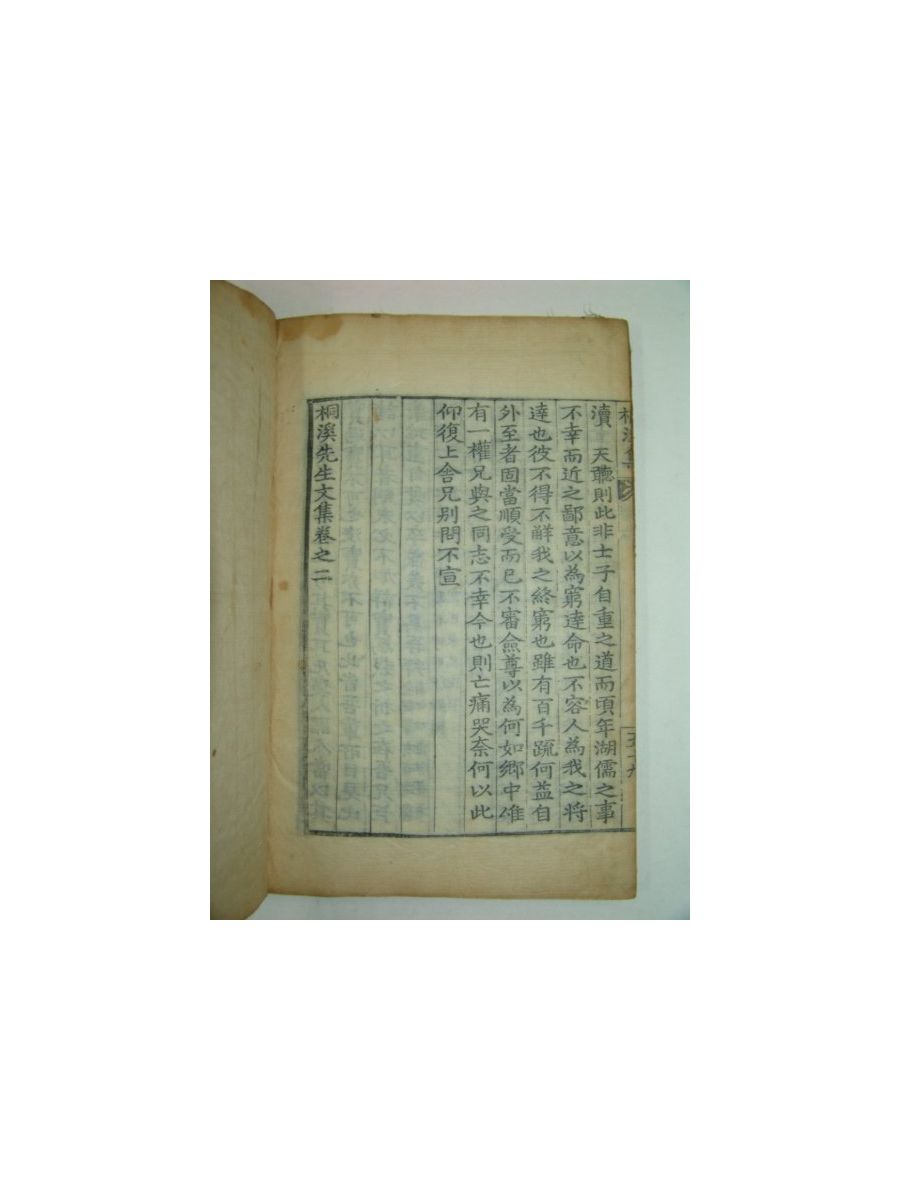 桐溪集
瀆 天聽則此非士子自重之道而頃年湖儒之事
不幸而近之鄙意以為窮達命也不容人為我之將
達也彼不得不觧我之終窮也雖有百千疏何益自
外至者固當順受而已不審僉尊以為何如鄉中唯
有一權兄與之同志不幸今也則亡痛哭奈何以此
仰復上舍兄别問不宣
桐溪先生文集卷之二